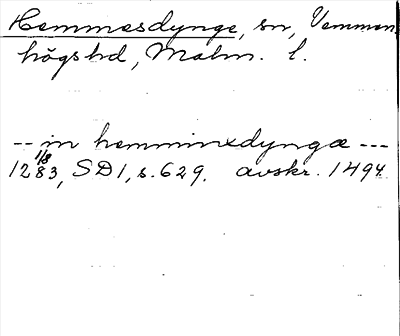 Hemmesdynge, sn, Vemmen-
högs hd, Malm. l.
-- in hemminxdyngæ ---
12 1/8 83, SD 1, s. 629. avskr. 1494